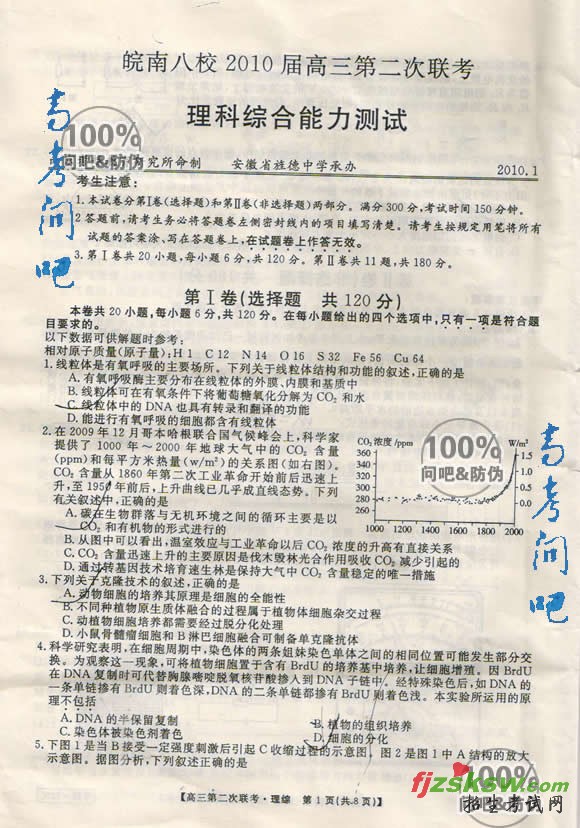 皖南八校 2010 届高三第二次联考
理科综合能力测试
高考问吧
100%
问吧&防伪
究所命制 安徽省旌德中学承办 2010.1
考生注意:
1.本试卷分第Ⅰ卷(选择题)和第Ⅱ卷(非选择题)两部分。满分 300 分,考试时间 150 分钟。
2.答题前,请考生务必将答题卷左侧密封线内的项目填写清楚。请考生按规定用笔将所有
试题的答案涂、写在答题卷上,在试题卷上作答无效。
3.第Ⅰ卷共 20 小题,每小题 6 分,共 120 分。第Ⅱ卷共 11 题,共 180 分。
第Ⅰ卷(选择题 共 120 分)
本卷共 20 小题,每小题 6 分,共 120 分。在每小题给出的四个选项中,只有一项是符合题
目要求的。
以下数据可供解题时参考:
相对原子质量(原子量):H 1 C 12 N 14 O 16 S 32 Fe 56 Cu 64
1.线粒体是有氧呼吸的主要场所。下列关于线粒体结构和功能的叙述,正确的是
A.有氧呼吸酶主要分布在线粒体的外膜、内膜和基质中
B.线粒体可在有氧条件下将葡萄糖氧化分解为 CO₂ 和水
C.线粒体中的 DNA 也具有转录和翻译的功能
D.能进行有氧呼吸的细胞都含有线粒体
2.在 2009 年 12 月哥本哈根联合国气候峰会上,科学家
提供了 1000 年～2000 年地球大气中的 CO₂ 含量
(ppm)和每平方米热量(w/m²)的关系图(如右图)。
CO₂ 含量从 1860 年第二次工业革命开始前后迅速上
升,至 1950 年前后,上升曲线已几乎成直线态势。下列
有关叙述中,正确的是
CO₂浓度/ppm W/m²
360
340
320
300
280
260
1.5
1.0
0.5
0.0
1000 1200 1400 1600 1800 2000
100%
问吧&防伪
高考问吧
A.碳在生物群落与无机环境之间的循环主要是以
CO₂ 和有机物的形式进行的
B.从图中可以看出,温室效应与工业革命以后 CO₂ 浓度的升高有直接关系
C.CO₂ 含量迅速上升的主要原因是伐木毁林光合作用吸收 CO₂ 减少引起的
D.通过转基因技术培育速生林是保持大气中 CO₂ 含量稳定的唯一措施
3.下列关于克隆技术的叙述,正确的是
A.动物细胞的培养其原理是细胞的全能性
B.不同种植物原生质体融合的过程属于植物体细胞杂交过程
C.动植物细胞培养都需要经过脱分化处理
D.小鼠骨髓瘤细胞和 B 淋巴细胞融合可制备单克隆抗体
4.科学研究表明,在细胞周期中,染色体的两条姐妹染色单体之间的相同位置可能发生部分交
换。为观察这一现象,可将植物细胞置于含有 BrdU 的培养基中培养,让细胞增殖。因 BrdU
在 DNA 复制时可代替胸腺嘧啶脱氧核苷酸掺入到 DNA 子链中。经特殊染色后,如 DNA 的
一条单链掺有 BrdU 则着色深,DNA 的二条单链都掺有 BrdU 则着色浅。本实验所运用的原
理不包括
A.DNA 的半保留复制 B.植物的组织培养
C.染色体被染色剂着色 D.细胞的分化
5.下图 1 是当 B 接受一定强度刺激后引起 C 收缩过程的示意图,图 2 是图 1 中 A 结构的放大
示意图。据图分析,下列叙述正确的是
【高三第二次联考·理综 第 1 页(共 8 页)】
100%
问吧&防伪
fjzsksw.com
招生考试网